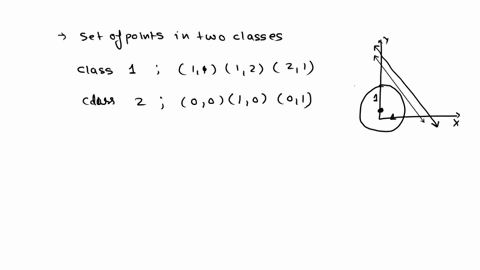 → set of points in two classes
class 1 ; (1,1) (1,2) (2,1)
class 2 ; (0,0) (1,0) (0,1)
Y
1
1
X